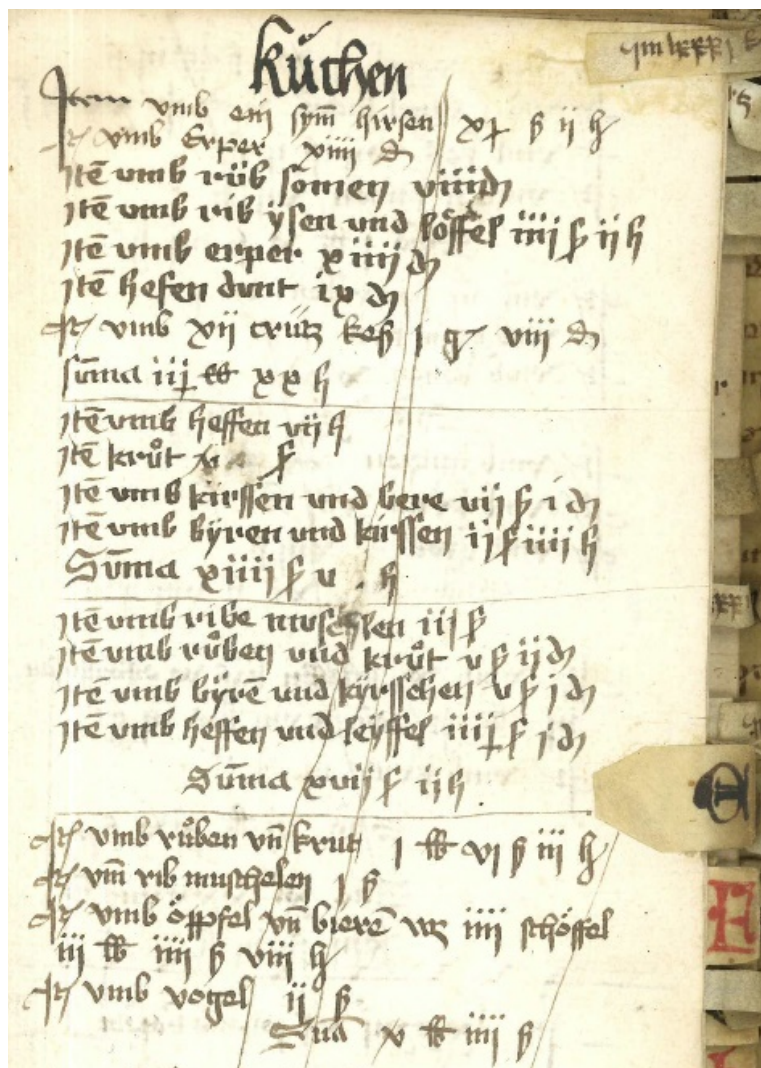 kůchen
Item vmb ein sym̄ hirsen xj ß ij h
It vmb Erper xiiii d
Itē vmb rüb somen viiii d
Itē vmb rib ÿsen und löffel iiij ß ij h
Itē vmb erper xiiij d
Itē hefen dunt ix d
It vmb xij crütz keß j g viij d
sūma iij lb xx h
Itē vmb heffen vij h
Itē krůt ß
Itē vmb kirssen und bere vij ß i d
Itē vmb bÿren und kirssen ij ß iiij h
Sūma xiiij ß v h
Itē vmb ribe muschlen iij ß
Itē vmb růben und krůt v ß ij d
Itē vmb bÿrē und kÿrsschen v ß j d
Itē vmb heffen und leÿffel iiij ß j d
Sūma xvij ß ij h
It vmb růben vn̄ krut j lb vj ß iij h
It vm̄ rib muschelen j ß
It vmb öppfel vn̄ bierē iiii schöffel
iij lb iiii ß viij h
It vmb vogel ij ß
Sūa v lb iiii ß
E